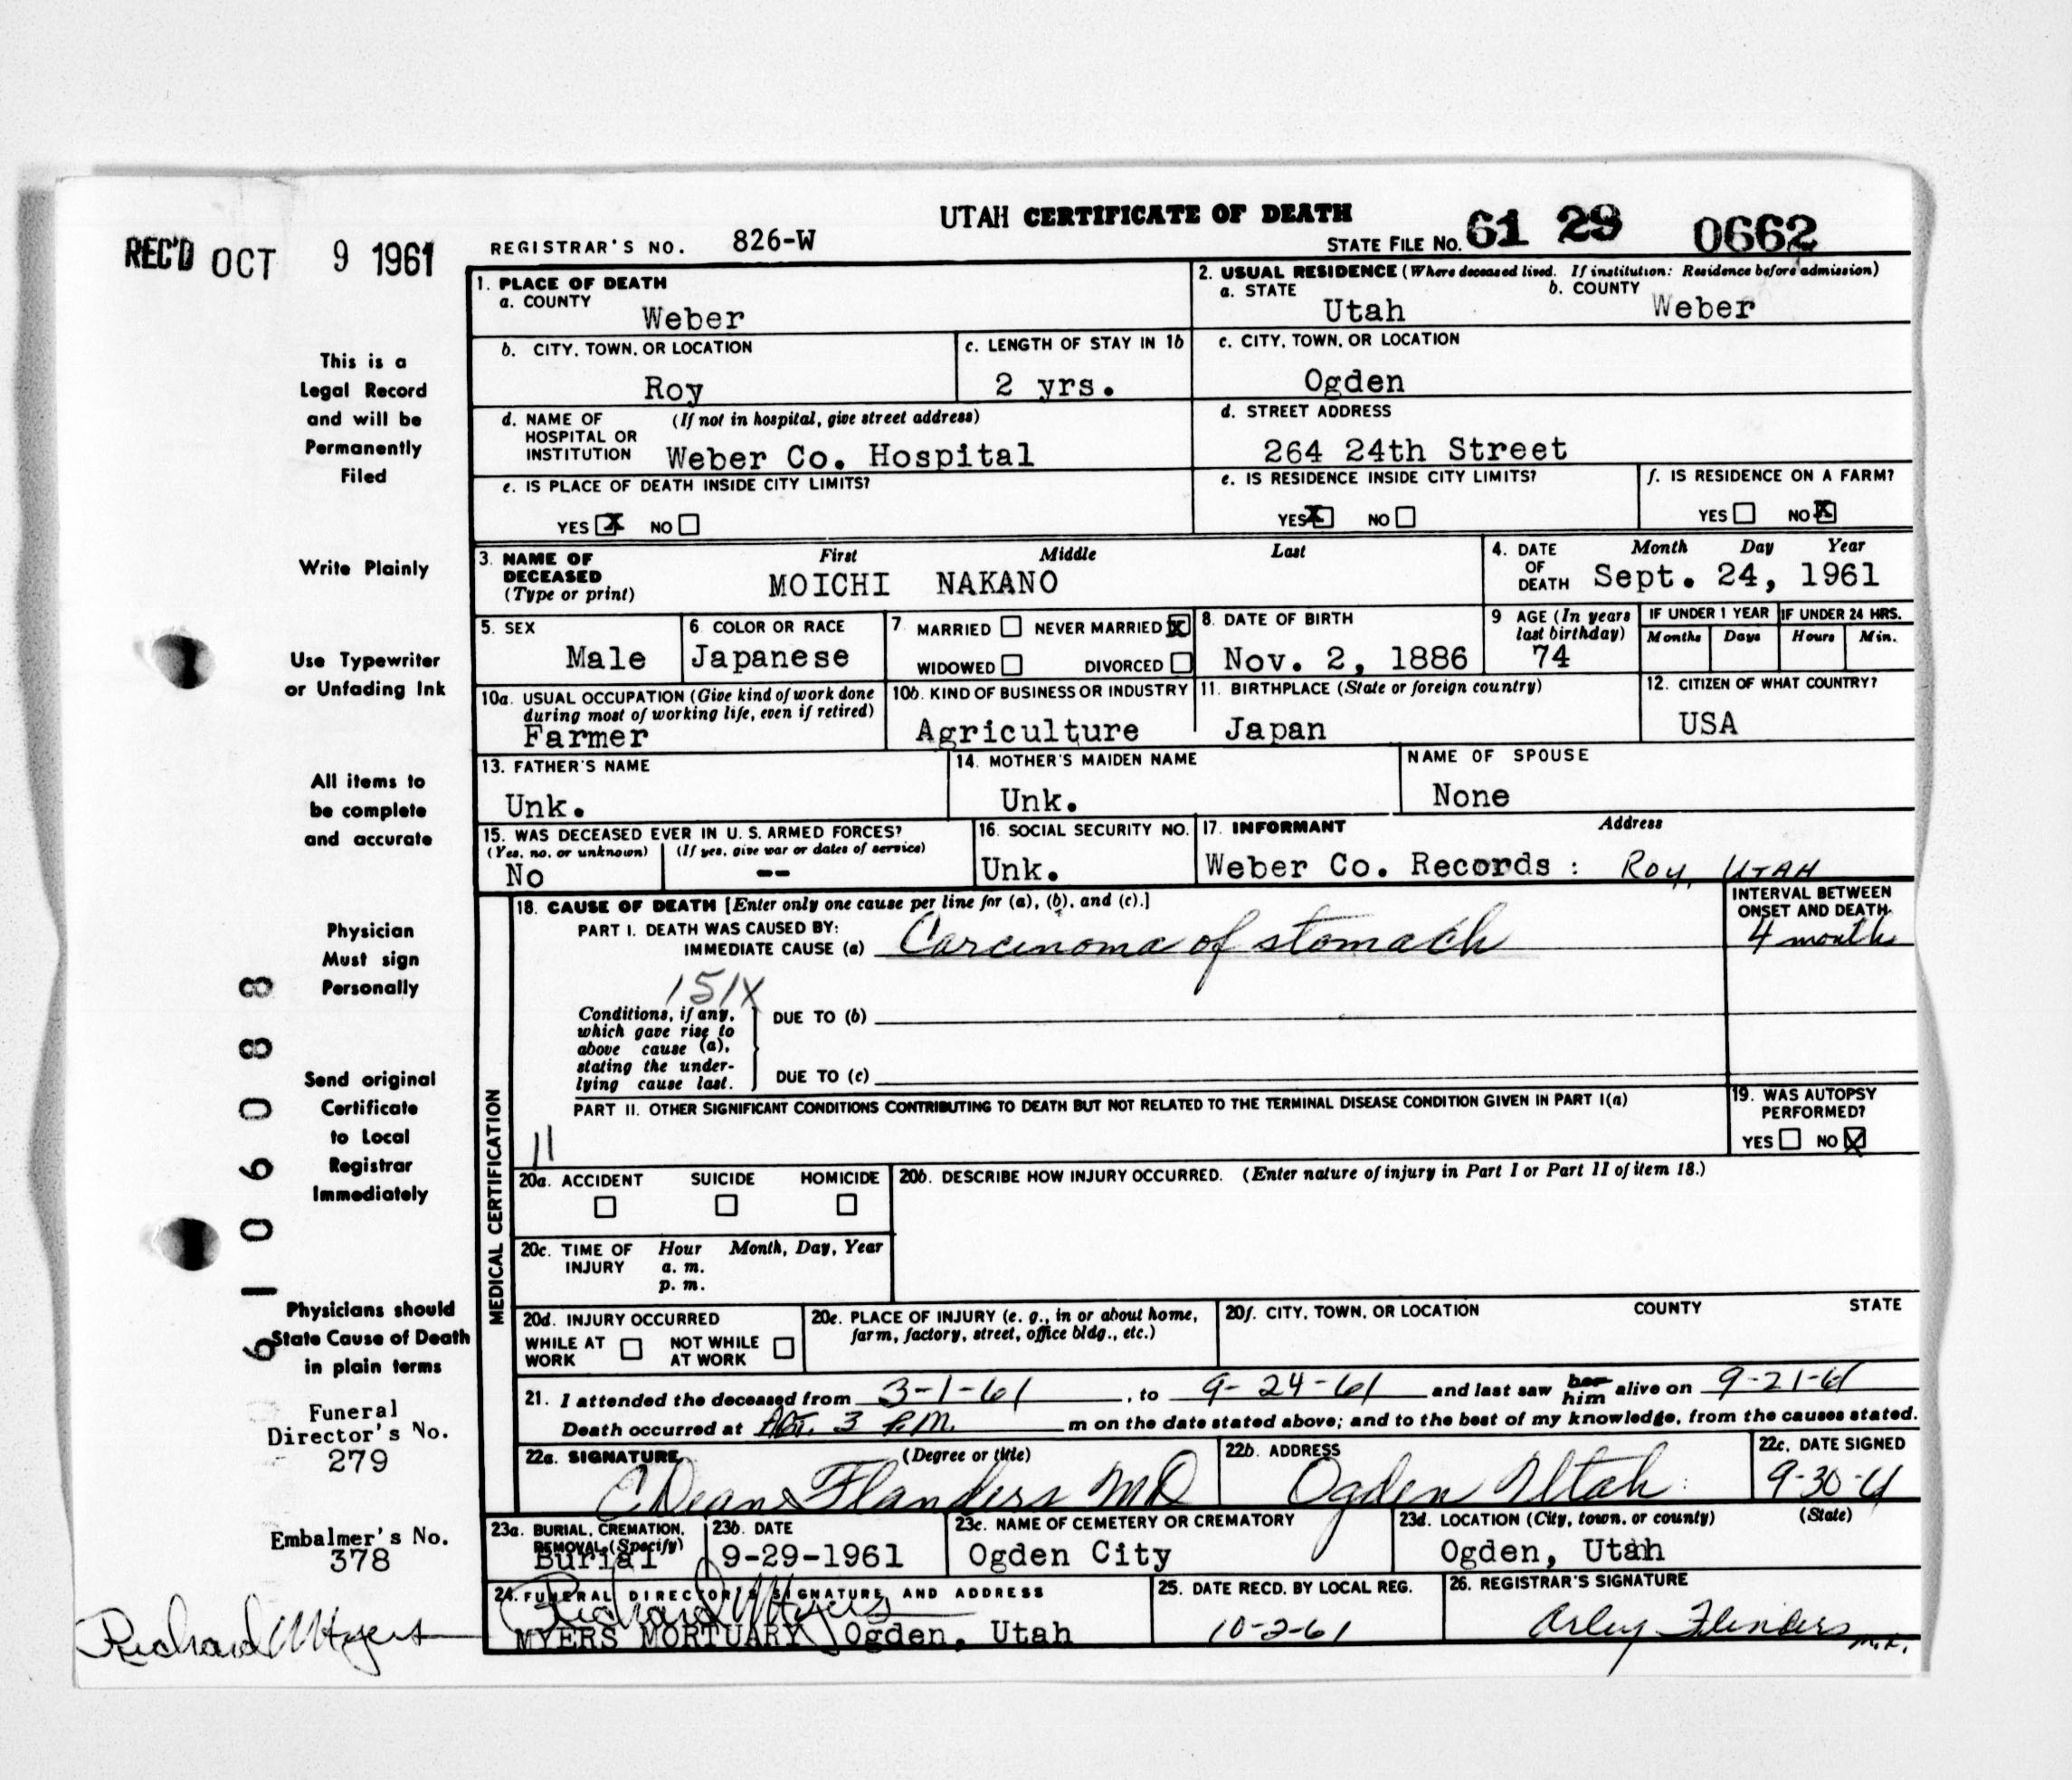 UTAH CERTIFICATE OF DEATH
REC'D OCT 9 1961
REGISTRAR'S NO. 826-W
STATE FILE NO. 61 29 0662
1. PLACE OF DEATH
a. COUNTY
Weber
2. USUAL RESIDENCE (Where deceased lived. If institution: Residence before admission)
a. STATE
Utah
b. COUNTY
Weber
b. CITY, TOWN, OR LOCATION
Roy
c. LENGTH OF STAY IN 1b
2 yrs.
c. CITY, TOWN, OR LOCATION
Ogden
d. NAME OF HOSPITAL OR INSTITUTION (If not in hospital, give street address)
Weber Co. Hospital
d. STREET ADDRESS
264 24th Street
e. IS PLACE OF DEATH INSIDE CITY LIMITS?
YES X NO
e. IS RESIDENCE INSIDE CITY LIMITS?
YES X NO
f. IS RESIDENCE ON A FARM?
YES NO X
3. NAME OF DECEASED (Type or print)
First Middle Last
MOICHI NAKANO
4. DATE OF DEATH
Month Day Year
Sept. 24, 1961
5. SEX
Male
6. COLOR OR RACE
Japanese
7. MARRIED NEVER MARRIED X
WIDOWED DIVORCED
8. DATE OF BIRTH
Nov. 2, 1886
9 AGE (In years last birthday)
74
IF UNDER 1 YEAR
Months Days
IF UNDER 24 HRS.
Hours Min.
10a. USUAL OCCUPATION (Give kind of work done during most of working life, even if retired)
Farmer
10b. KIND OF BUSINESS OR INDUSTRY
Agriculture
11. BIRTHPLACE (State or foreign country)
Japan
12. CITIZEN OF WHAT COUNTRY?
USA
13. FATHER'S NAME
Unk.
14. MOTHER'S MAIDEN NAME
Unk.
NAME OF SPOUSE
None
15. WAS DECEASED EVER IN U. S. ARMED FORCES?
(Yes, no, or unknown) (If yes, give war or dates of service)
No --
16. SOCIAL SECURITY NO.
Unk.
17. INFORMANT Address
Weber Co. Records : Roy, UTAH
MEDICAL CERTIFICATION
18. CAUSE OF DEATH [Enter only one cause per line for (a), (b), and (c).]
PART I. DEATH WAS CAUSED BY:
IMMEDIATE CAUSE (a) Carcinoma of stomach
INTERVAL BETWEEN ONSET AND DEATH
4 months
151X
Conditions, if any, which gave rise to above cause (a), stating the underlying cause last.
DUE TO (b)
DUE TO (c)
PART II. OTHER SIGNIFICANT CONDITIONS CONTRIBUTING TO DEATH BUT NOT RELATED TO THE TERMINAL DISEASE CONDITION GIVEN IN PART I(a)
11
19. WAS AUTOPSY PERFORMED?
YES NO X
20a. ACCIDENT SUICIDE HOMICIDE
20b. DESCRIBE HOW INJURY OCCURRED. (Enter nature of injury in Part I or Part II of item 18.)
20c. TIME OF INJURY
Hour Month, Day, Year
a. m.
p. m.
20d. INJURY OCCURRED
WHILE AT WORK NOT WHILE AT WORK
20e. PLACE OF INJURY (e. g., in or about home, farm, factory, street, office bldg., etc.)
20f. CITY, TOWN, OR LOCATION COUNTY STATE
21. I attended the deceased from 3-1-61, to 9-24-61 and last saw her him alive on 9-21-61
Death occurred at 3 P.M. m on the date stated above; and to the best of my knowledge, from the causes stated.
22a. SIGNATURE (Degree or title)
C Dean Flanders MD
22b. ADDRESS
Ogden Utah
22c. DATE SIGNED
9-30-61
23a. BURIAL, CREMATION, REMOVAL (Specify)
Burial
23b. DATE
9-29-1961
23c. NAME OF CEMETERY OR CREMATORY
Ogden City
23d. LOCATION (City, town, or county) (State)
Ogden, Utah
24. FUNERAL DIRECTOR'S SIGNATURE AND ADDRESS
Richard Myers
MYERS MORTUARY Ogden, Utah
25. DATE RECD. BY LOCAL REG.
10-2-61
26. REGISTRAR'S SIGNATURE
Arley Flinders
This is a
Legal Record
and will be
Permanently
Filed
Write Plainly
Use Typewriter
or Unfading Ink
All items to
be complete
and accurate
Physician
Must sign
Personally
Send original
Certificate
to Local
Registrar
Immediately
Physicians should
State Cause of Death
in plain terms
Funeral
Director's No.
279
Embalmer's No.
378
Richard Myers
61060888